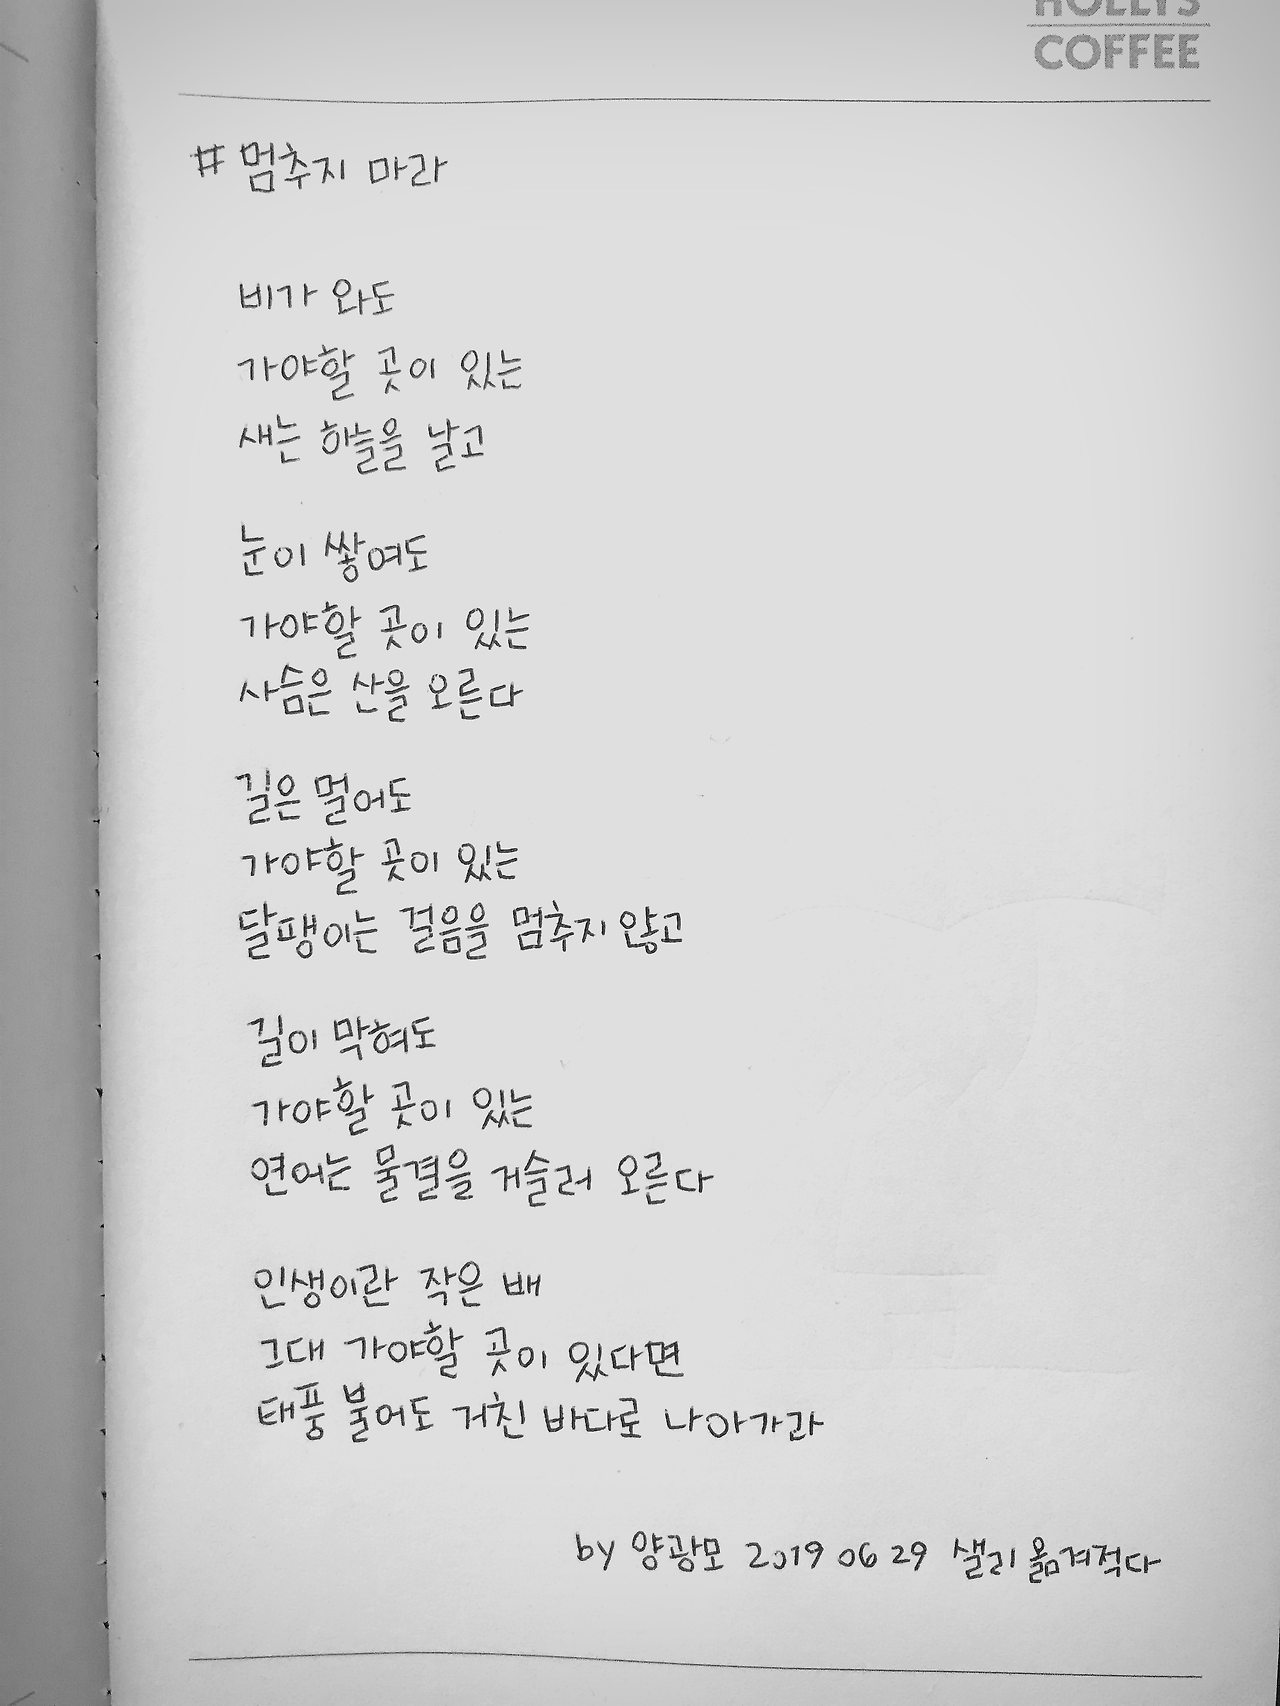 HOLLYS
COFFEE
# 멈추지 마라
비가 와도
가야할 곳이 있는
새는 하늘을 날고
눈이 쌓여도
가야할 곳이 있는
사슴은 산을 오른다
길은 멀어도
가야할 곳이 있는
달팽이는 걸음을 멈추지 않고
길이 막혀도
가야할 곳이 있는
연어는 물결을 거슬러 오른다
인생이란 작은 배
그대 가야할 곳이 있다면
태풍 불어도 거친 바다로 나아가라
by 양광모 2019 06 29 샐리 옮겨적다